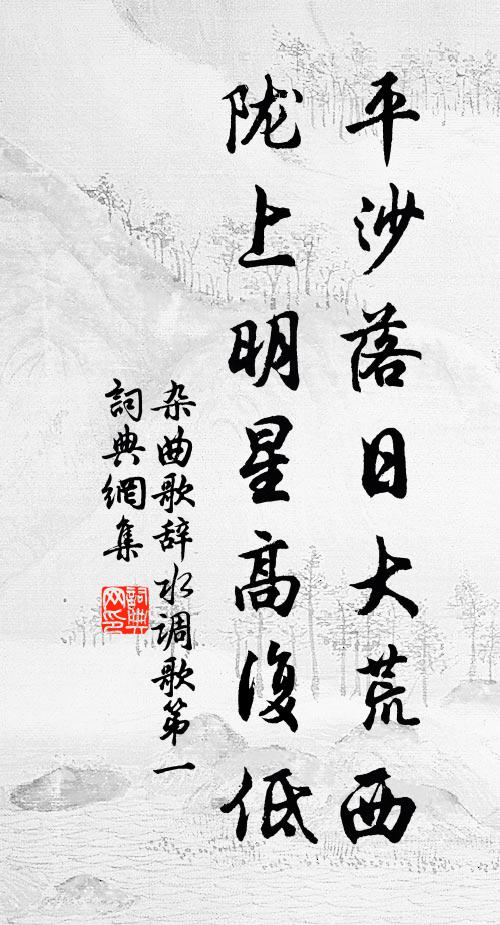 平沙落日大荒西
陇上明星高復低
杂曲歌辞水调歌第一
詞典網集
詞典网印